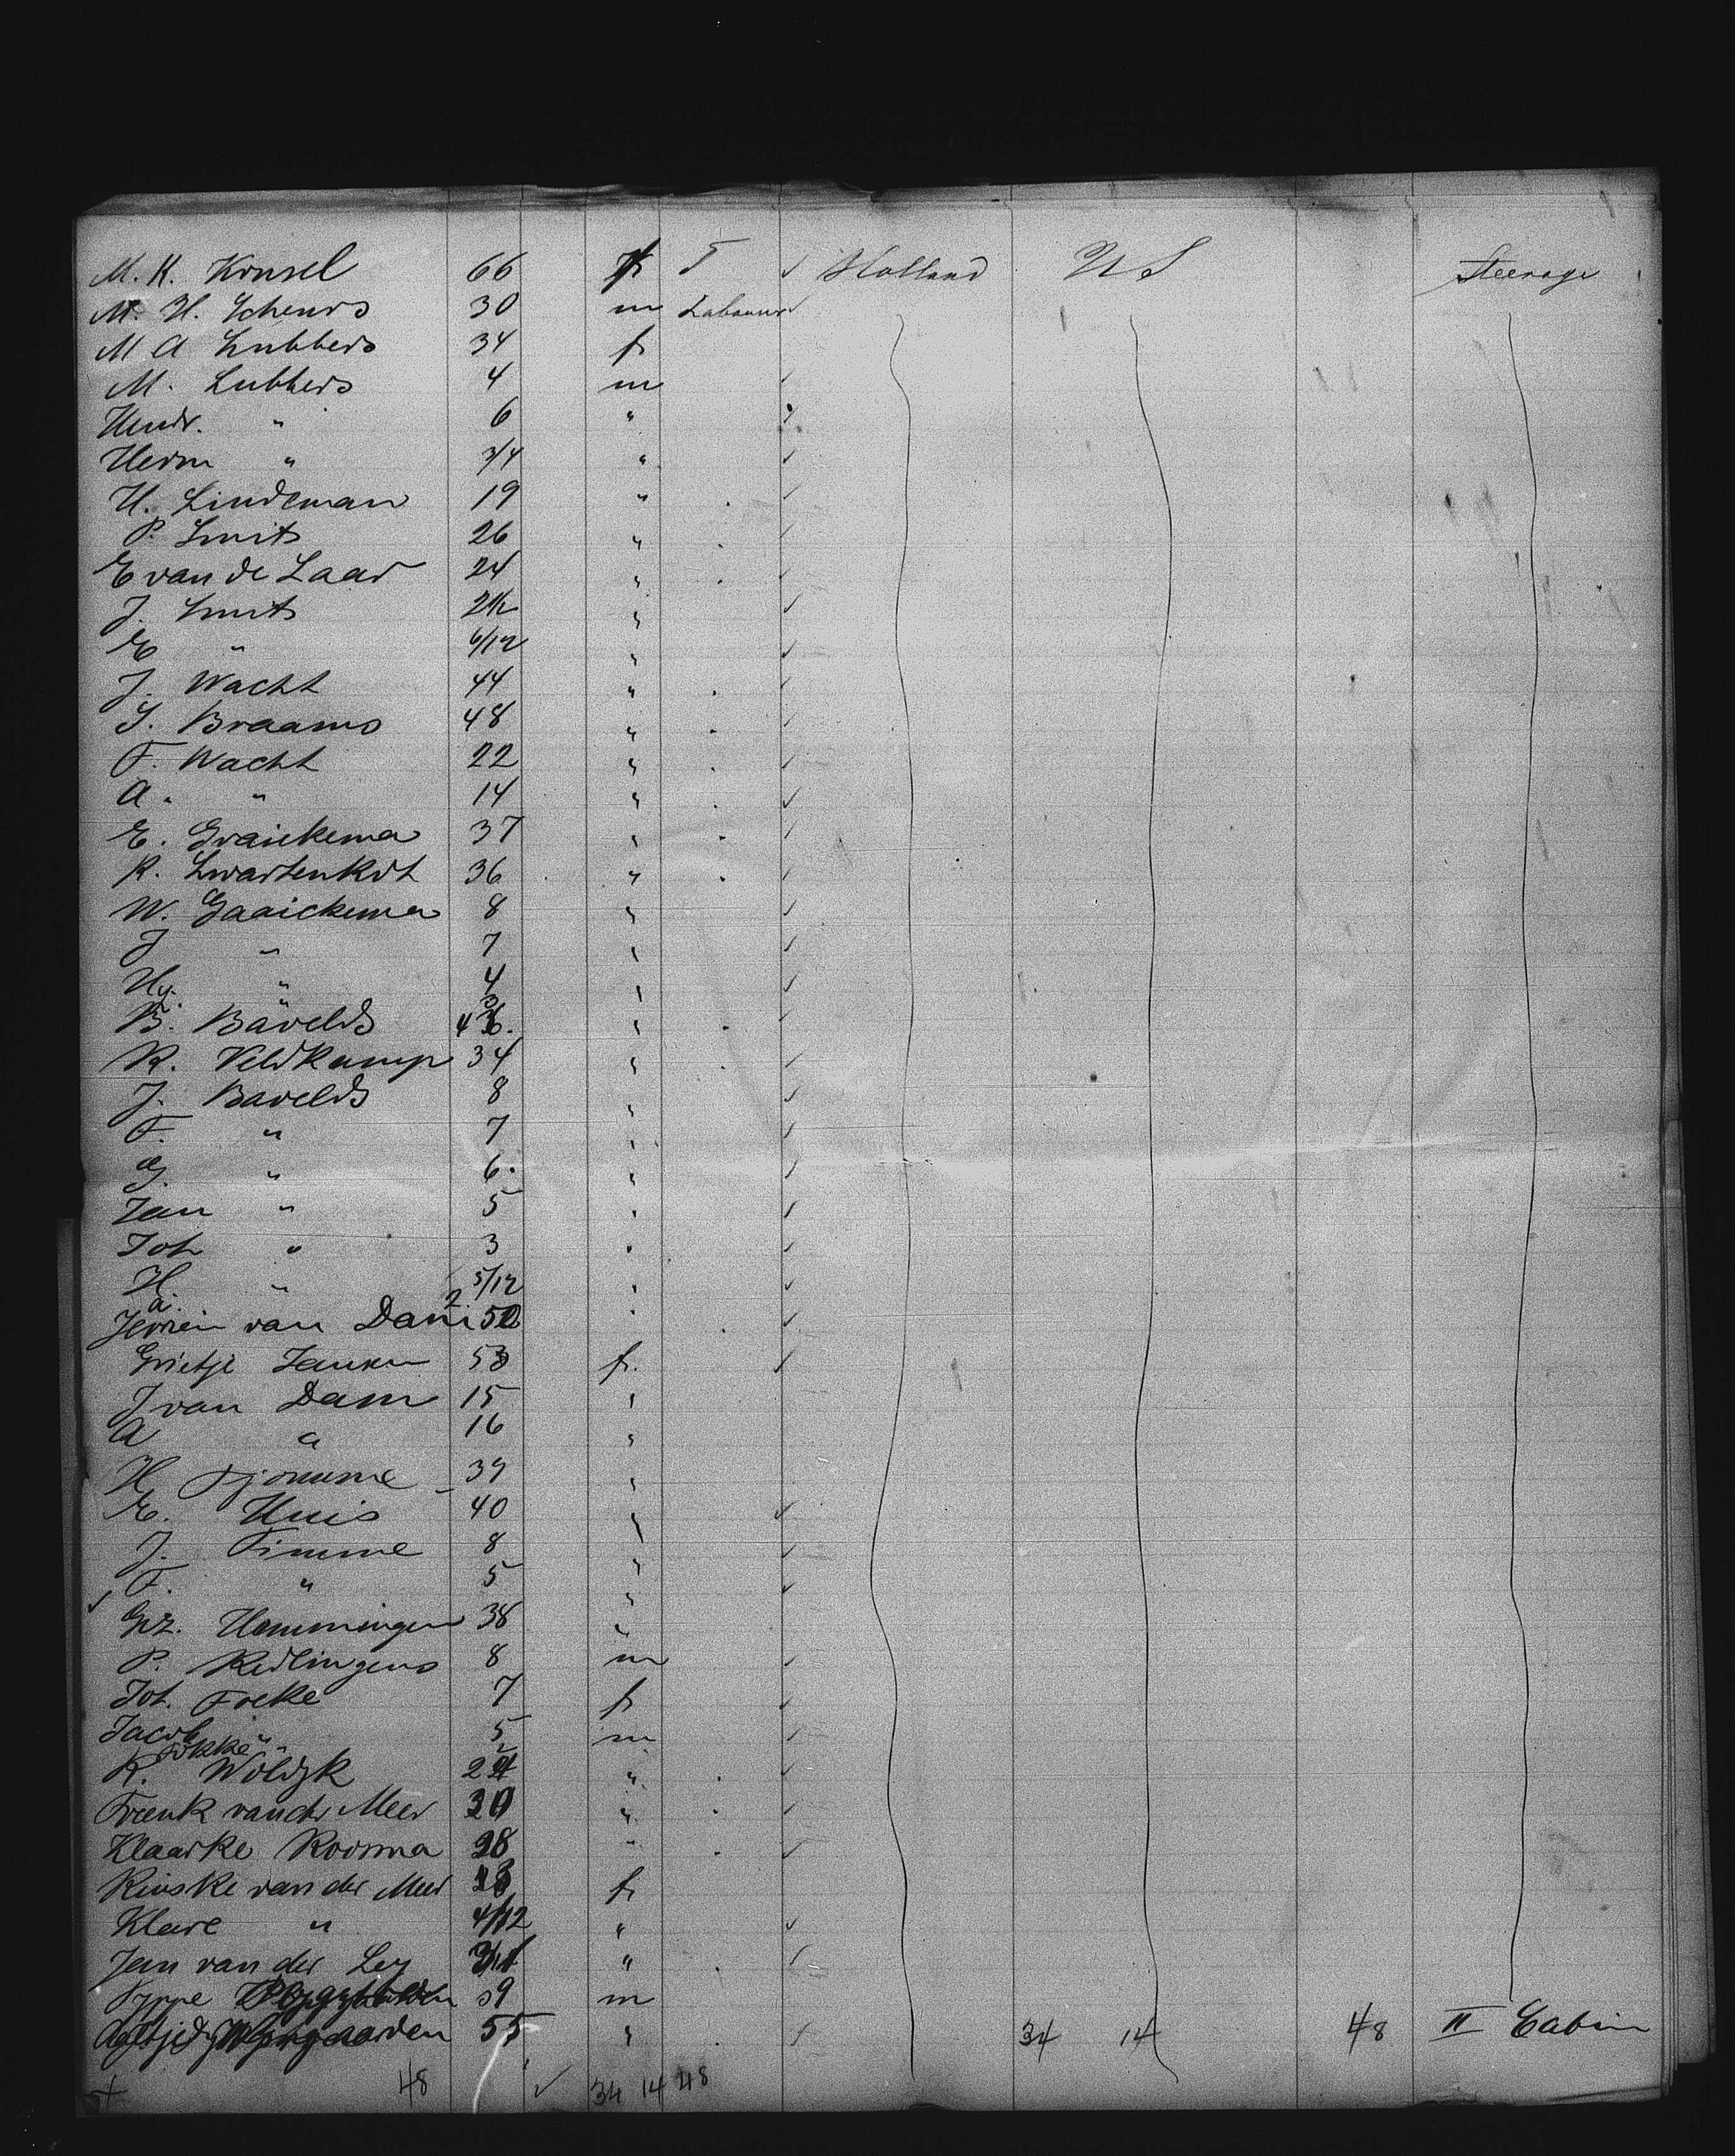 M. K. Konsel 66 f T ✓ Holland U S Steerage
M. H. Scheurs 30 m Labourer
M A Lubbers 34 f
M. Lubbers 4 m ✓
Hendr. " 6 "
Herm " 3/4 " ✓
H. Lindeman 19 " ✓
P. Smits 26 " ✓
E van de Laar 24 " ✓
J. Smits 2½ " ✓
E " 6/12 " ✓
J. Wacht 44 " ✓
S. Braams 48 " ✓
F. Wacht 22 " ✓
A. " 14 " ✓
E. Graickema 37 " ✓
K. Zwartenkot 36 " ✓
W. Gaaickema 8 " ✓
J " 7 " ✓
Hy. " 4 " ✓
B. Bavelds " ✓
K. Veldkamp 34 " ✓
J. Bavelds 8 " ✓
F. " 7 " ✓
G. " 6 " ✓
Jan " 5 " ✓
Joh " 3 " ✓
H " 5/12 " ✓
van Dam " ✓
Grietje Janken 53 f. ✓
J van Dam 15 "
A " 16 "
H Tjomme 39 "
E. Huis 40 " ✓
J. Timme 8 " ✓
F. " 5 " ✓
✓ Gez. Hemmingen 38 "
P. Redlingens 8 m ✓
Joh. Focke 7 f ✓
Jacob " 5 m ✓
Fokke "
K. Woldyk " ✓
Freenk van der Meer " ✓
Klaarke Roorma 28 " ✓
Rinske van der Meer f
Klare " 4/12 " ✓
Jan van der Ley " ✓
Sjppe 59 m
55 " ✓ 34 14 48 II Cabin
48 ✓ 34 14 48